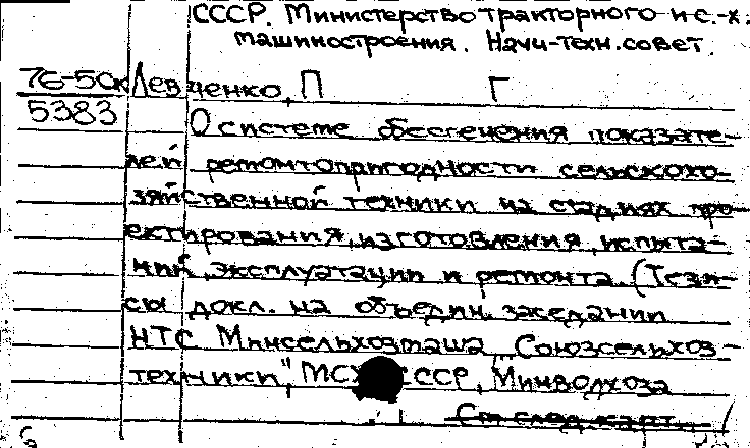 СССР. Министерство тракторного и с.-х.
машиностроения. Науч-техн.совет.
76-50к Левченко, П Г
5383
О системе обеспечения показате-
лей ремонтопригодности сельскохо-
зяйственной техники на стадиях про-
ектирования, изготовления, испыта-
ний, эксплуатации и ремонта. (Тези-
сы докл. на объедин. заседании
НТС Минсельхозмаша, "Союзсельхоз-
техники", МСХ СССР, Минводхоза
См след.карт.